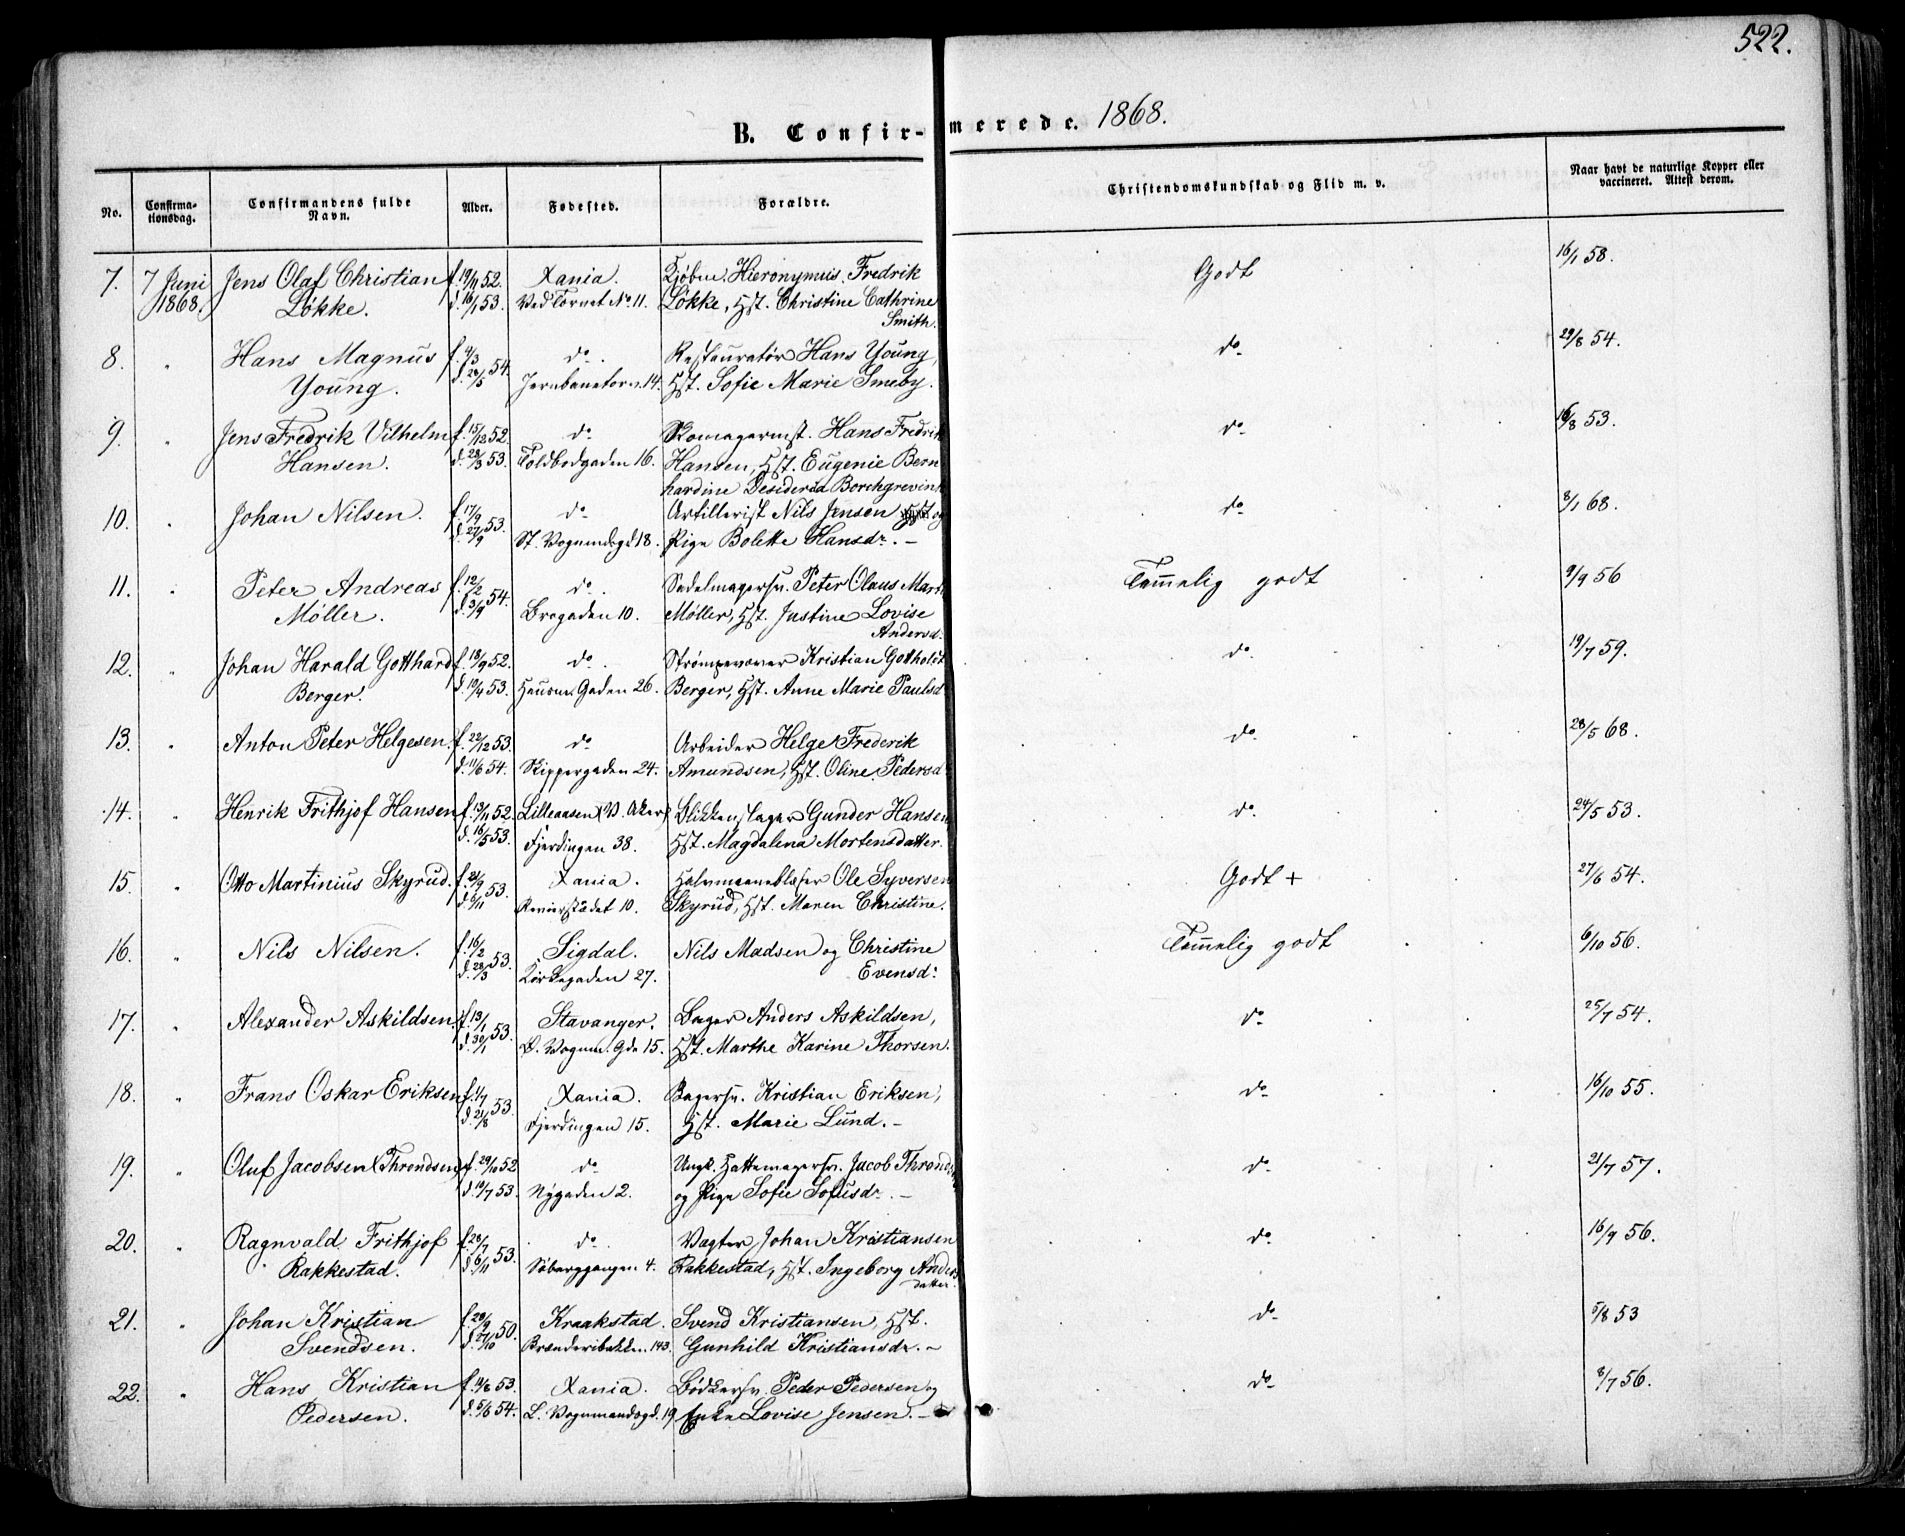 522.
B. Confirmerede. 1868.
No. Confirmationsdag. Confirmandens fulde Navn. Alder. Fødested. Forældre. Christendomskundskab og Flid m. v. Naar havt de naturlige Kopper eller vaccineret. Attest derom.
7. 7 Juni Jens Olaf Christian f. 19/11 52. Xania. Kjøbm. Hieronymus Fredrik Godt 16/1 58.
1868. Løkke. d. 16/1 53. Ved Torvet No 11. Løkke, Hst. Christine Cathrine
Smith.
8. " Hans Magnus f. 4/3 54. do. Restauratør Hans Young, do 29/8 54.
Young. d. 28/5 Jernbanetorv. 14. Hst. Sofie Marie Smeby.
9. " Jens Fredrik Vilhelm f. 15/12 52. do Skomagermst. Hans Fredrik do 16/8 53.
Hansen. d. 28/3 53. Toldbodgaden 16. Hansen, Hst. Eugenie Bern
hardine Desideria Borchgrevink
10. " Johan Nilsen. f. 17/9 53. do Artillerist Nils Jensen og do 8/1 68.
d. 27/9 St. Vognmdsgd. 18. Pige Bolette Hansdr. -
11. " Peter Andreas f. 12/2 54. do. Sadelmagersv. Peter Olaus Mart. Tem̅elig godt 9/9 56
Møller. d. 3/9 Brogaden 10. Møller, Hst. Justine Lovise
Andersd:
12. " Johan Harald Gotthard f. 18/9 52. do. Strømpevæver Kristian Gottholdt do. 19/7 59.
Berger. d. 10/4 53. Hausm. Gaden 26. Berger, Hst. Anne Marie Paulsd
13. " Anton Peter Helgesen. f. 22/12 53. do Arbeider Helge Frederik do. 28/5 68.
d. 11/6 54. Skippergaden 24. Amundsen, Hst. Oline Pedersd
14. " Henrik Frithjof Hansen f. 13/11 52. Lilleaasen (V. Aker) Blikkenslager Gunder Hansen do. 24/5 53.
d. 16/5 53. Fjerdingen 38. Hst. Magdalena Mortensdatter.
15. " Otto Martinius Skyrud. f. 21/9 53. Xania. Halvmaaneblæser Ole Syversen Godt + 27/6 54.
d. 6/11 Revierstrædet 10. Skyrud, Hst. Maren Christine.
16. " Nils Nilsen. f. 16/2 53. Sigdal. Nils Madsen og Christine Tem̅elig godt 6/10 56.
d. 28/3 Kirkegaden 27. Evensd:
17. " Alexander Askildsen. f. 13/1 53. Stavanger. Bager Anders Askildsen, do 25/7 54.
d. 30/1 L. Vognm. Gde 15. Hst. Marthe Karine Thorsen.
18. " Frans Oskar Eriksen f. 4/7 53. Xania. Bagersv. Kristian Eriksen, do 16/10 55.
d. 21/8 Fjerdingen 15. Hst. Marie Lund. -
19. " Oluf Jacobsen (Throndsen) f. 29/10 52 do Ungk. Hattemagersv. Jacob Throndsen do 21/7 57.
d. 10/7 53. Nygaden 2. og Pige Sofie Sofusdr. -
20. " Ragnvald Frithjof f. 28/7 53. do. Vægter Johan Kristiansen do 16/9 56.
Rakkestad. d. 6/11 Søbarggangen 4. Rakkestad, Hst. Ingeborg Anders
datter.
21. " Johan Kristian f. 20/9 50. Kraakstad. Svend Kristiansen, Hst. do 5/8 53
Svendsen. d. 27/10 Brænderibakken. 143. Gunhild Kristiansdr. -
22. " Hans Kristian f. 11/8 53. Xania. Bødkersv. Peder Pedersen og do 8/7 56.
Pedersen. d. 5/6 54. L. Vognmandsgd. 19 Enke Lovise Jensen. -